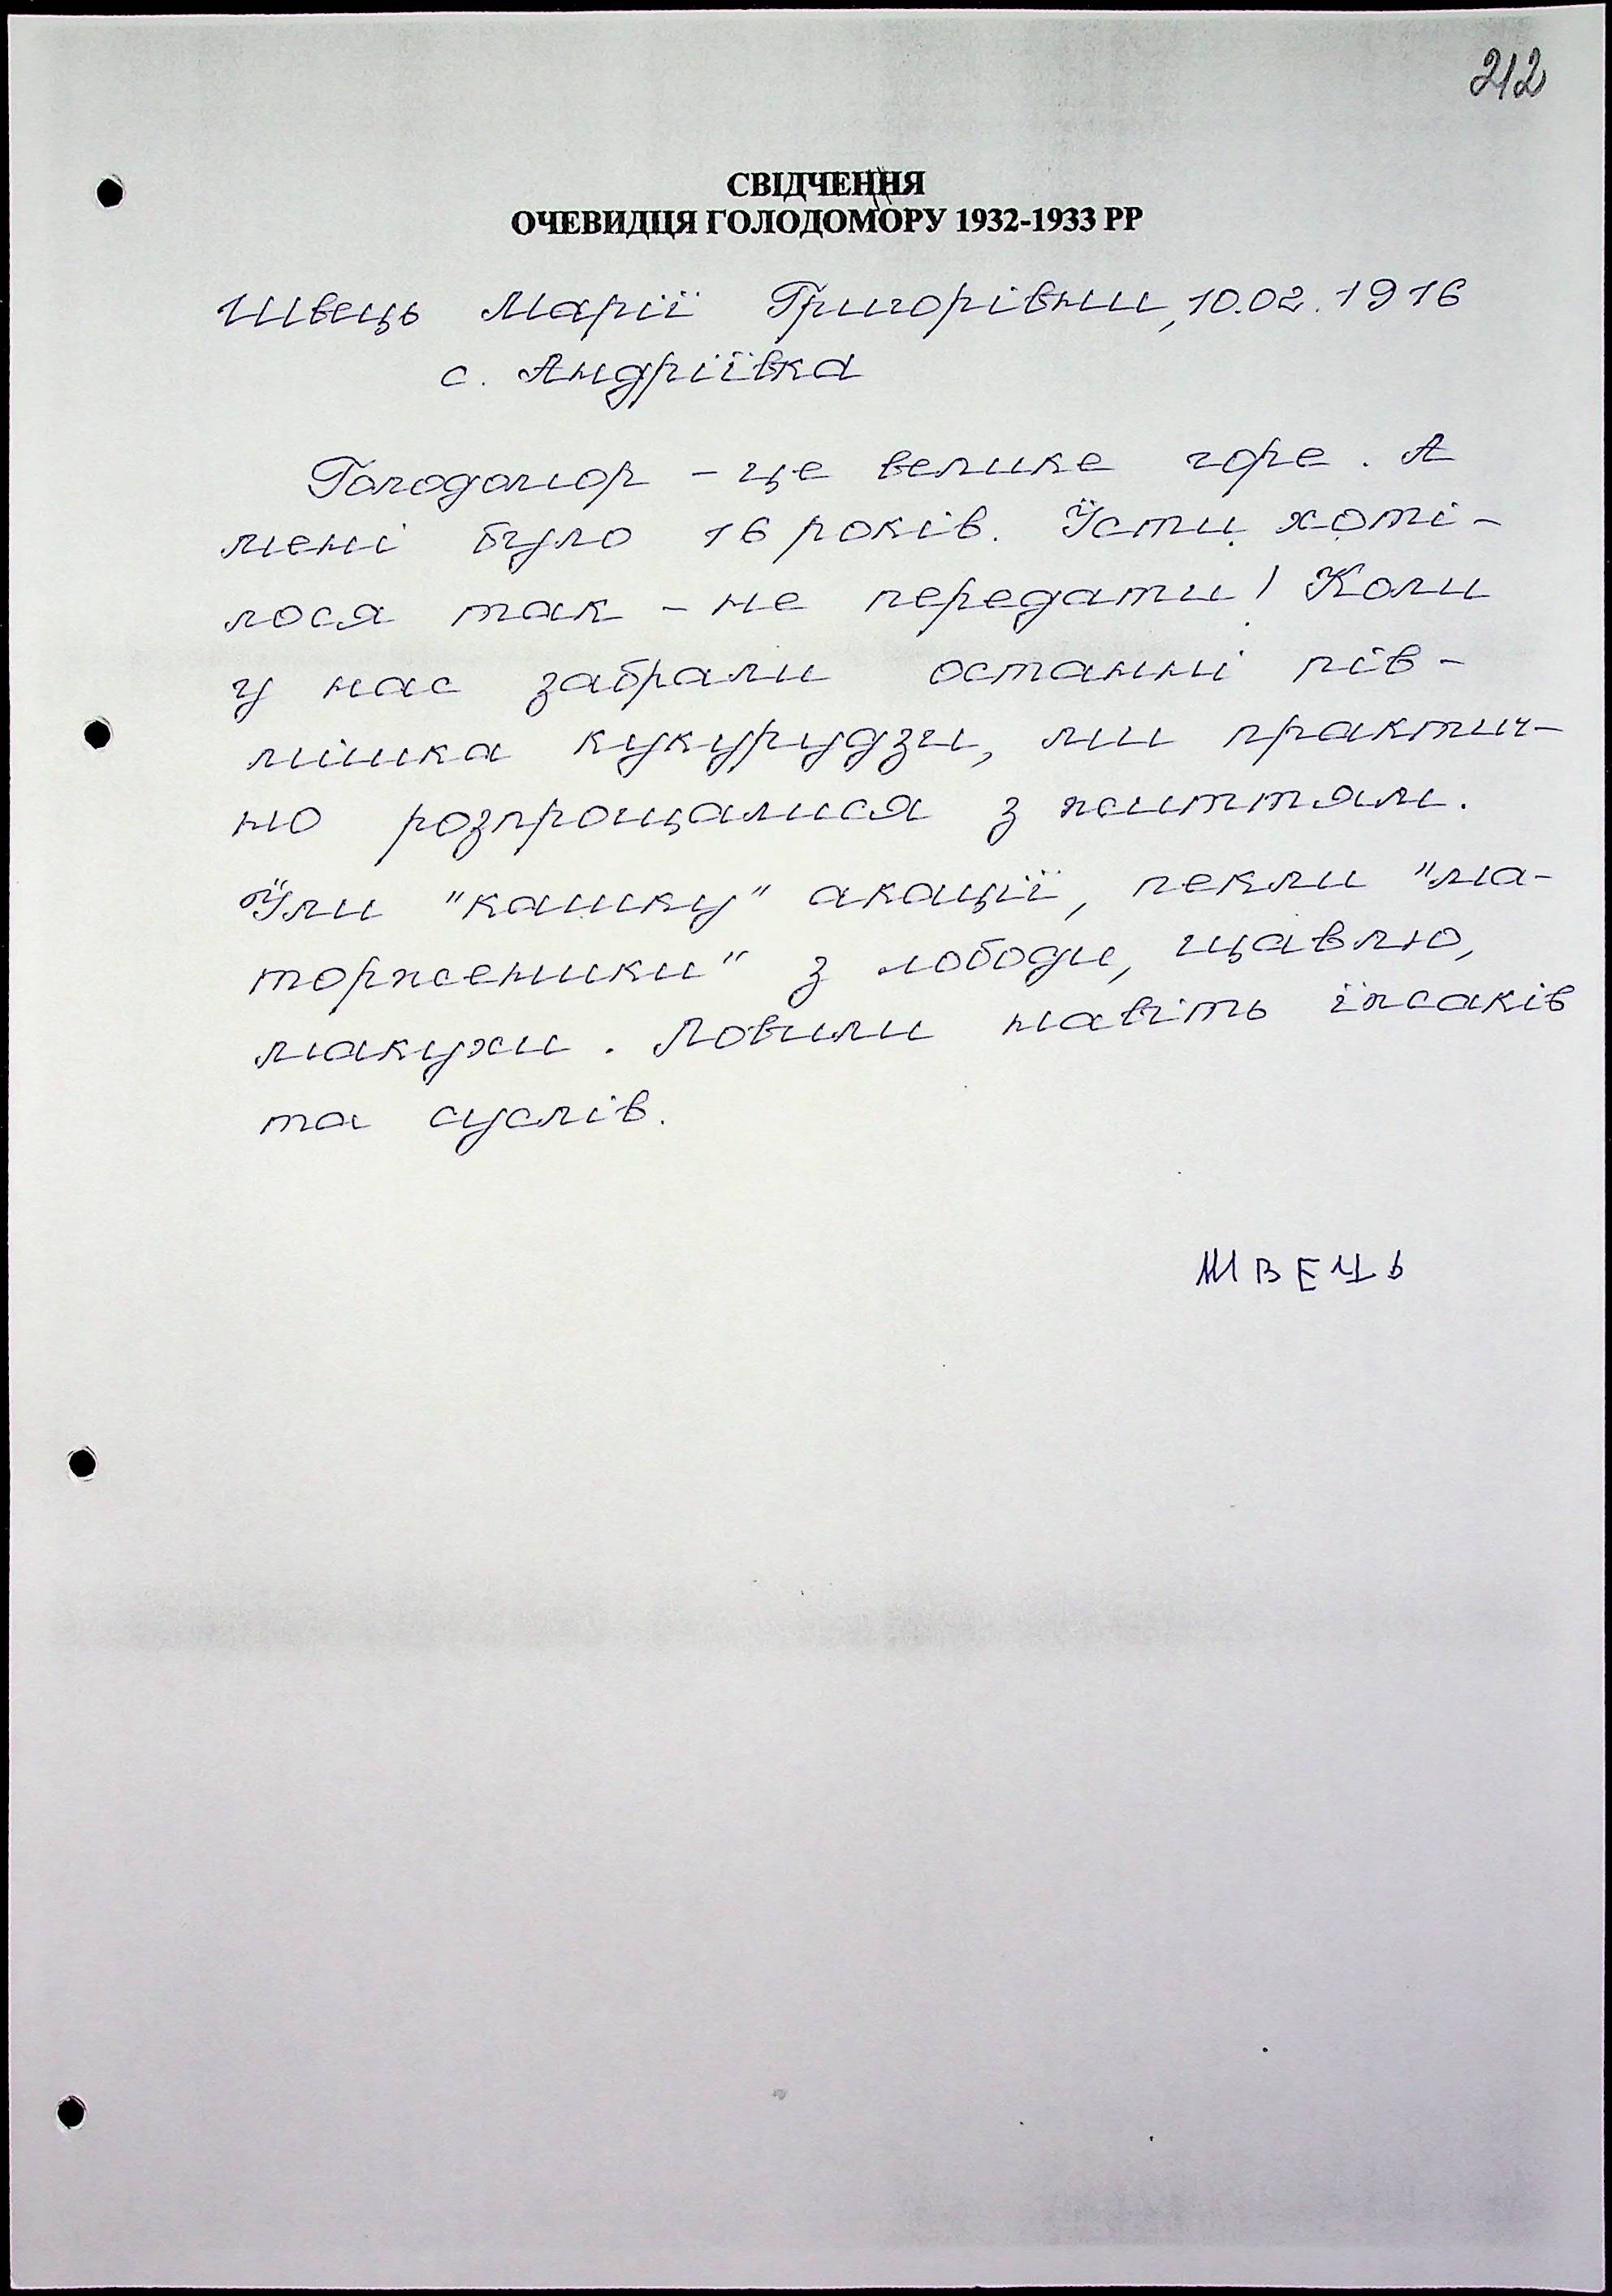 212
СВІДЧЕННЯ
ОЧЕВИДЦЯ ГОЛОДОМОРУ 1932-1933 РР
Швець Марії Григорівни, 10.02.1916
с. Андріївка
Голодомор – це велике горе. А
мені було 16 років. Їсти хоті-
лося так – не передати! Коли
у нас забрали останні пів-
мішка кукурудзи, ми практич-
но розпрощалися з життям.
Їли "кашку" акації, пекли "ма-
торженики" з лободи, щавлю,
макухи. Ловили навіть їжаків
та суслів.
ШВЕЦЬ